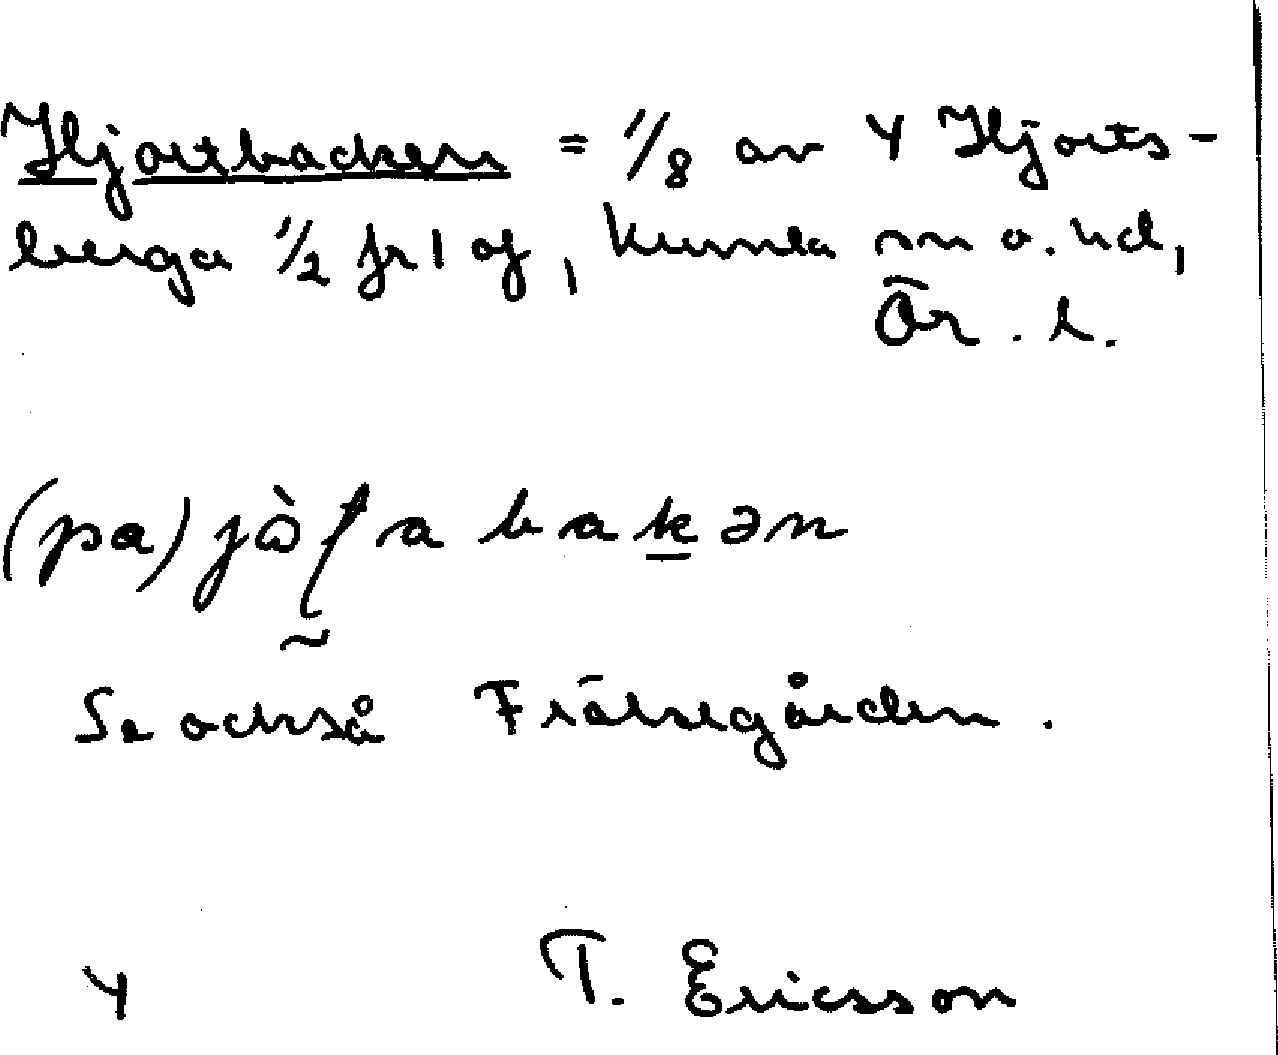 Hjortbacken = 1/8 av 4 Hjorts-
berga 1/2 fr 1 of, Kumla sn o. hd,
Ör. l.
(pa) jò̱ʃa bakən
Se också Frälsegården.
4 T. Ericsson